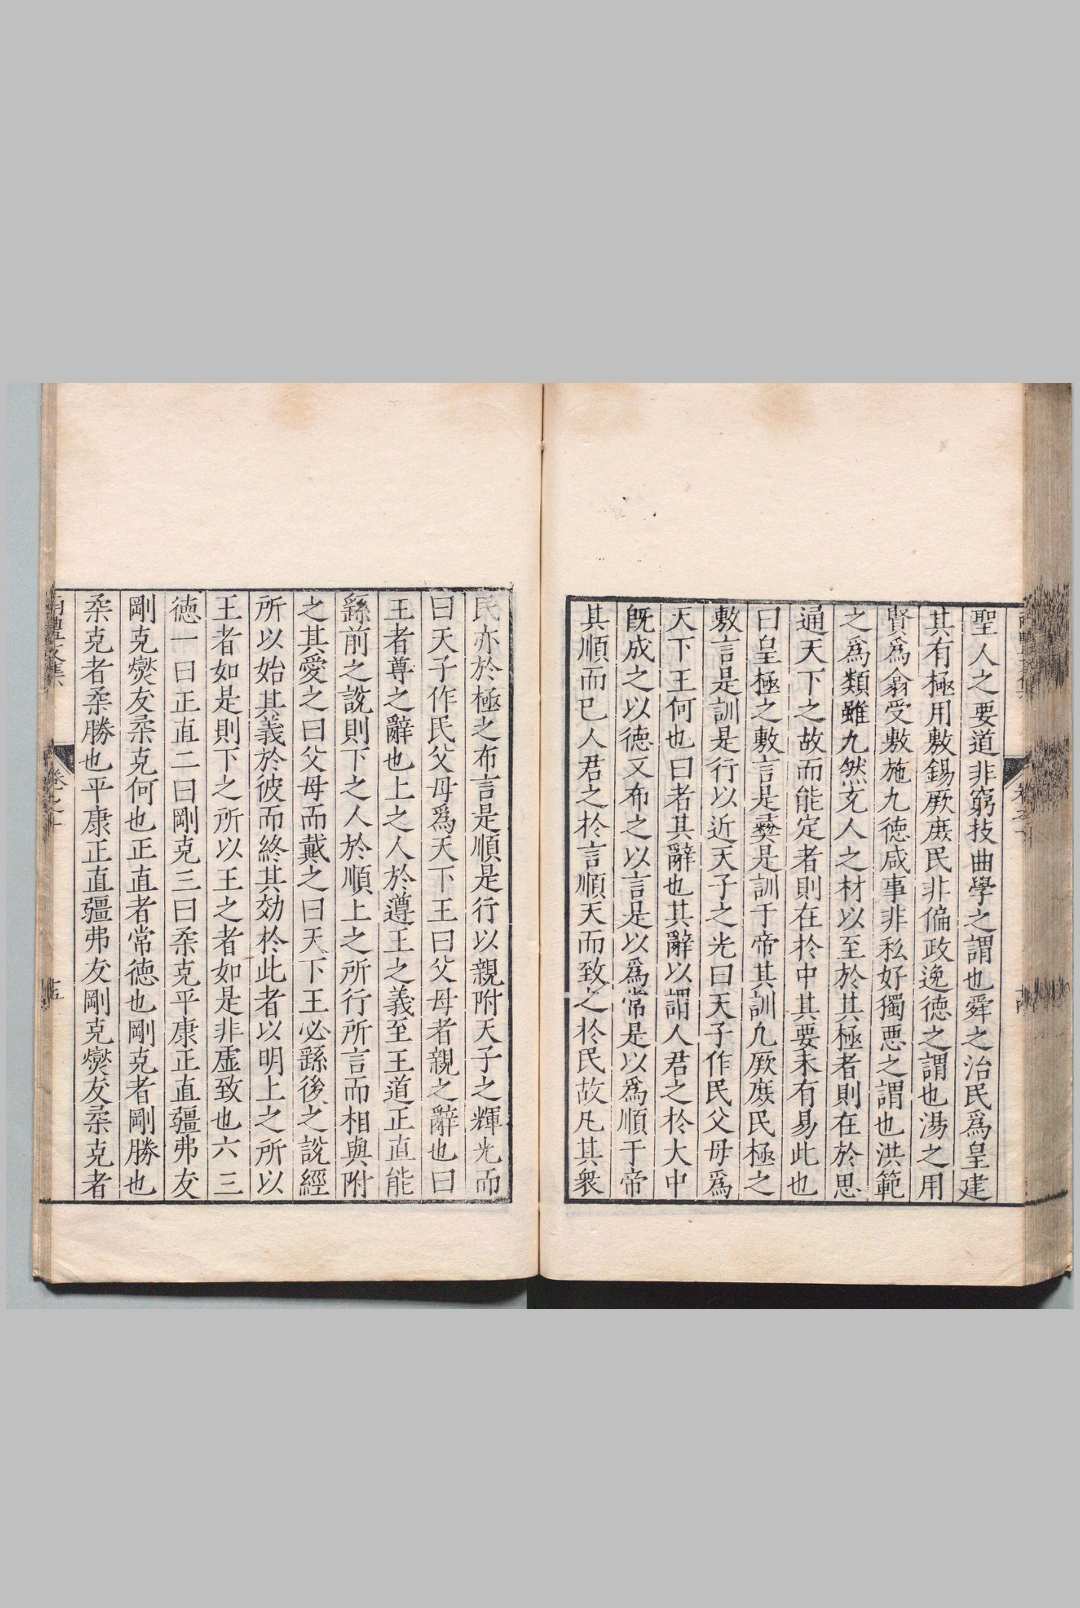 聖人之要道非窮技曲學之謂也舜之治民爲皇建
其有極用敷錫厥庶民非偏政逸德之謂也湯之用
賢爲翕受敷施九德咸事非私好獨惡之謂也洪範
之爲類雖九然充人之材以至於其極者則在於思
通天下之故而能定者則在於中其要未有易此也
曰皇極之敷言是彝是訓于帝其訓凡厥庶民極之
敷言是訓是行以近天子之光曰天子作民父母爲
天下王何也曰者其辭也其辭以謂人君之於大中
旣成之以德又布之以言是以爲常是以爲順于帝
其順而已人君之於言順天而致之於民故凡其衆
民亦於極之布言是順是行以親附天子之輝光而
曰天子作民父母爲天下王曰父母者親之辭也曰
王者尊之辭也上之人於遵王之義至王道正直能
繇前之說則下之人於順上之所行所言而相與附
之其愛之曰父母而戴之曰天下王必繇後之說經
所以始其義於彼而終其効於此者以明上之所以
王者如是則下之所以王之者如是非虛致也六三
德一曰正直二曰剛克三曰柔克平康正直彊弗友
剛克燮友柔克何也正直者常德也剛克者剛勝也
柔克者柔勝也平康正直彊弗友剛克燮友柔克者
卷之十
十五